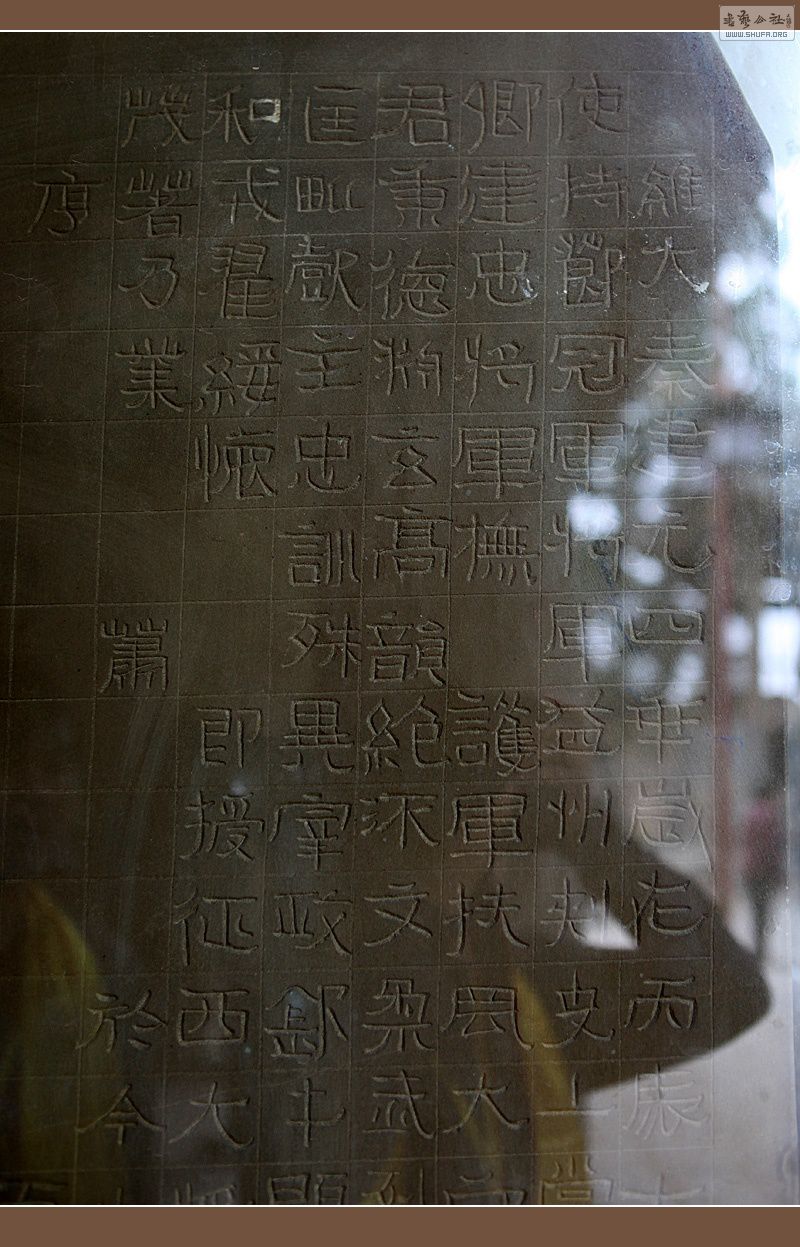 維大秦建元四年歲在丙辰十
使持節冠軍將軍益州刺史上黨
卿建忠將軍撫 護軍扶風大
君秉德淵玄高韻絕 文柔武
匡毗 主忠訓殊異宰政
和戎翟綏懷 即授征西大將
茂著乃業 萬 於今
序
書藝公社
WWW.SHUFA.ORG